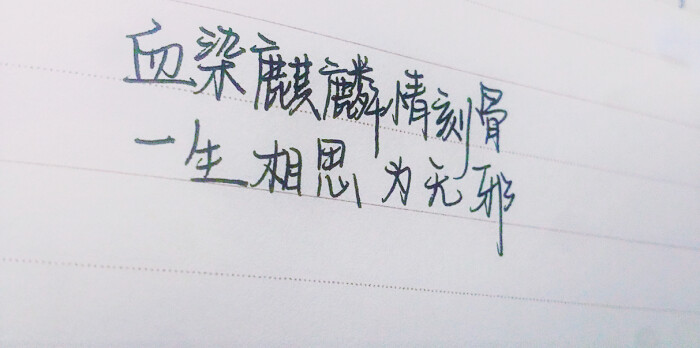 血染麒麟情刻骨
一生相思为无邪